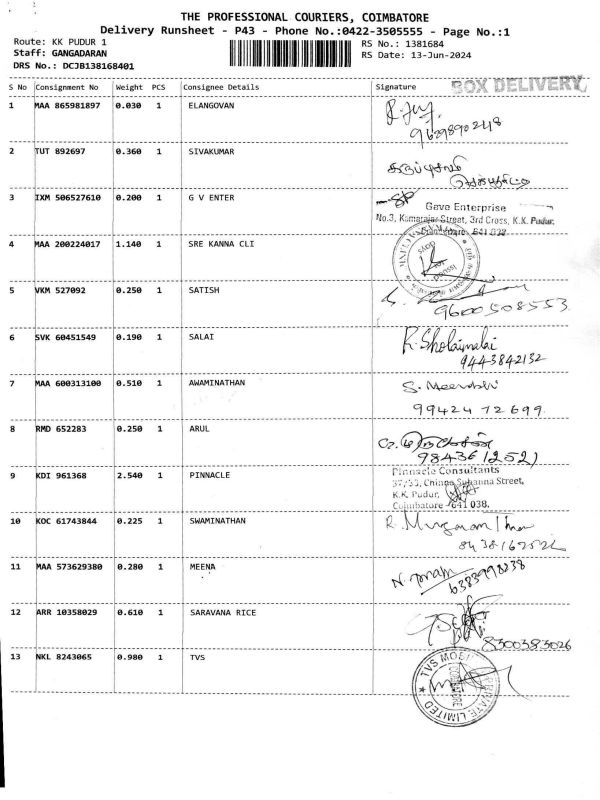 THE PROFESSIONAL COURIERS, COIMBATORE
Delivery Runsheet - P43 - Phone No.:0422-3505555 - Page No.:1
Route: KK PUDUR 1 RS No.: 1381684
Staff: GANGADARAN RS Date: 13-Jun-2024
DRS No.: DCJB138168401
BOX DELIVERY
S No Consignment No Weight PCS Consignee Details Signature
1 MAA 865981897 0.030 1 ELANGOVAN
9629890248
2 TUT 892697 0.360 1 SIVAKUMAR
3 IXM 506527610 0.200 1 G V ENTER
Geve Enterprise
No.3, Kamarajar Street, 3rd Cross, K.K. Pudur,
Coimbatore - 641 038
4 MAA 200224017 1.140 1 SRE KANNA CLI
5 VKM 527092 0.250 1 SATISH
9600508553
6 SVK 60451549 0.190 1 SALAI R. Sholaimalai
9443842132
7 MAA 600313100 0.510 1 AWAMINATHAN S. Meenakshi
99424 72699
8 RMD 652283 0.250 1 ARUL
9843612521
9 KDI 961368 2.540 1 PINNACLE
Pinnacle Consultants
37/33, Chinna Subanna Street,
K.K. Pudur,
Coimbatore - 641 038.
10 KOC 61743844 0.225 1 SWAMINATHAN
11 MAA 573629380 0.280 1 MEENA
6383998238
12 ARR 10358029 0.610 1 SARAVANA RICE
8300383026
13 NKL 8243065 0.980 1 TVS
TVS PRIVATE LIMITED
COIMBATORE